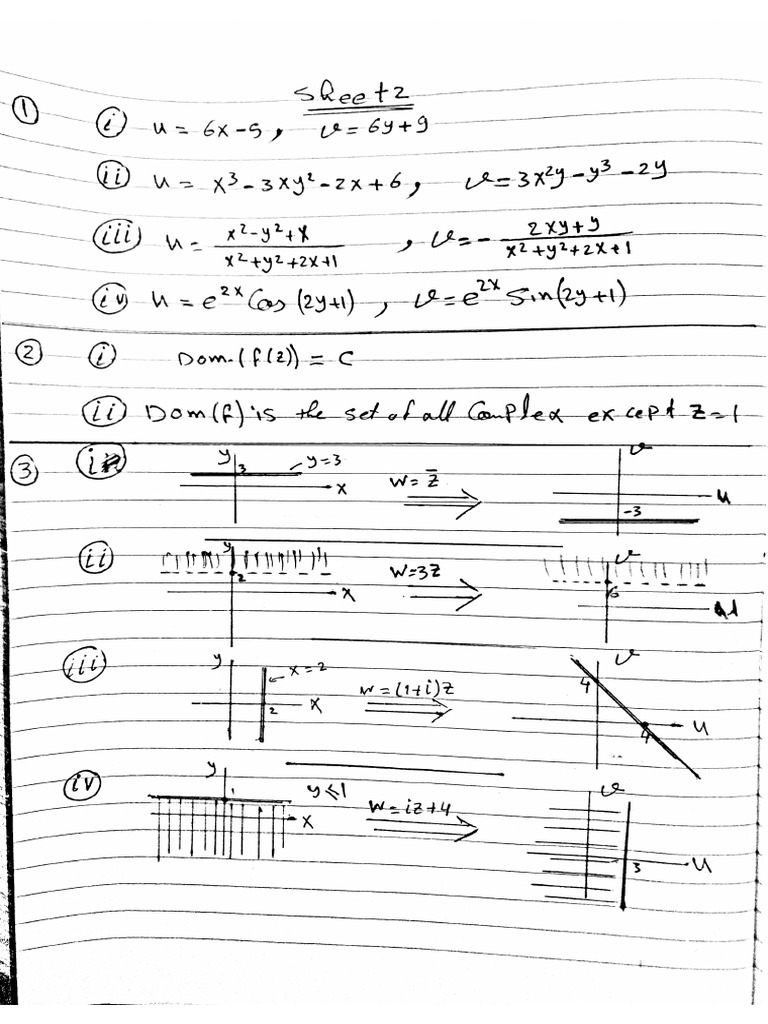 Sheet 2
① ⓘ u = 6x-5, v = 6y+9
ⓘⓘ u = x³-3xy²-2x+6, v=3x²y-y³-2y
ⓘⓘⓘ u = (x²-y²+x)/(x²+y²+2x+1), v=-(2xy+y)/(x²+y²+2x+1)
ⓘⓥ u=e^{2x}Cos(2y+1), v=e^{2x} Sin(2y+1)
② ⓘ Dom(f(z)) = C
ⓘⓘ Dom(f) is the set of all Complex except z=1
③ ⓘ y 3 y=3 x w=z̄ v u -3
ⓘⓘ y 2 x w=3z v 6 u
ⓘⓘⓘ y x=2 2 x w=(1+i)z v 4 4 u
ⓘⓥ y 1 y≤1 x w=iz+4 v 3 u